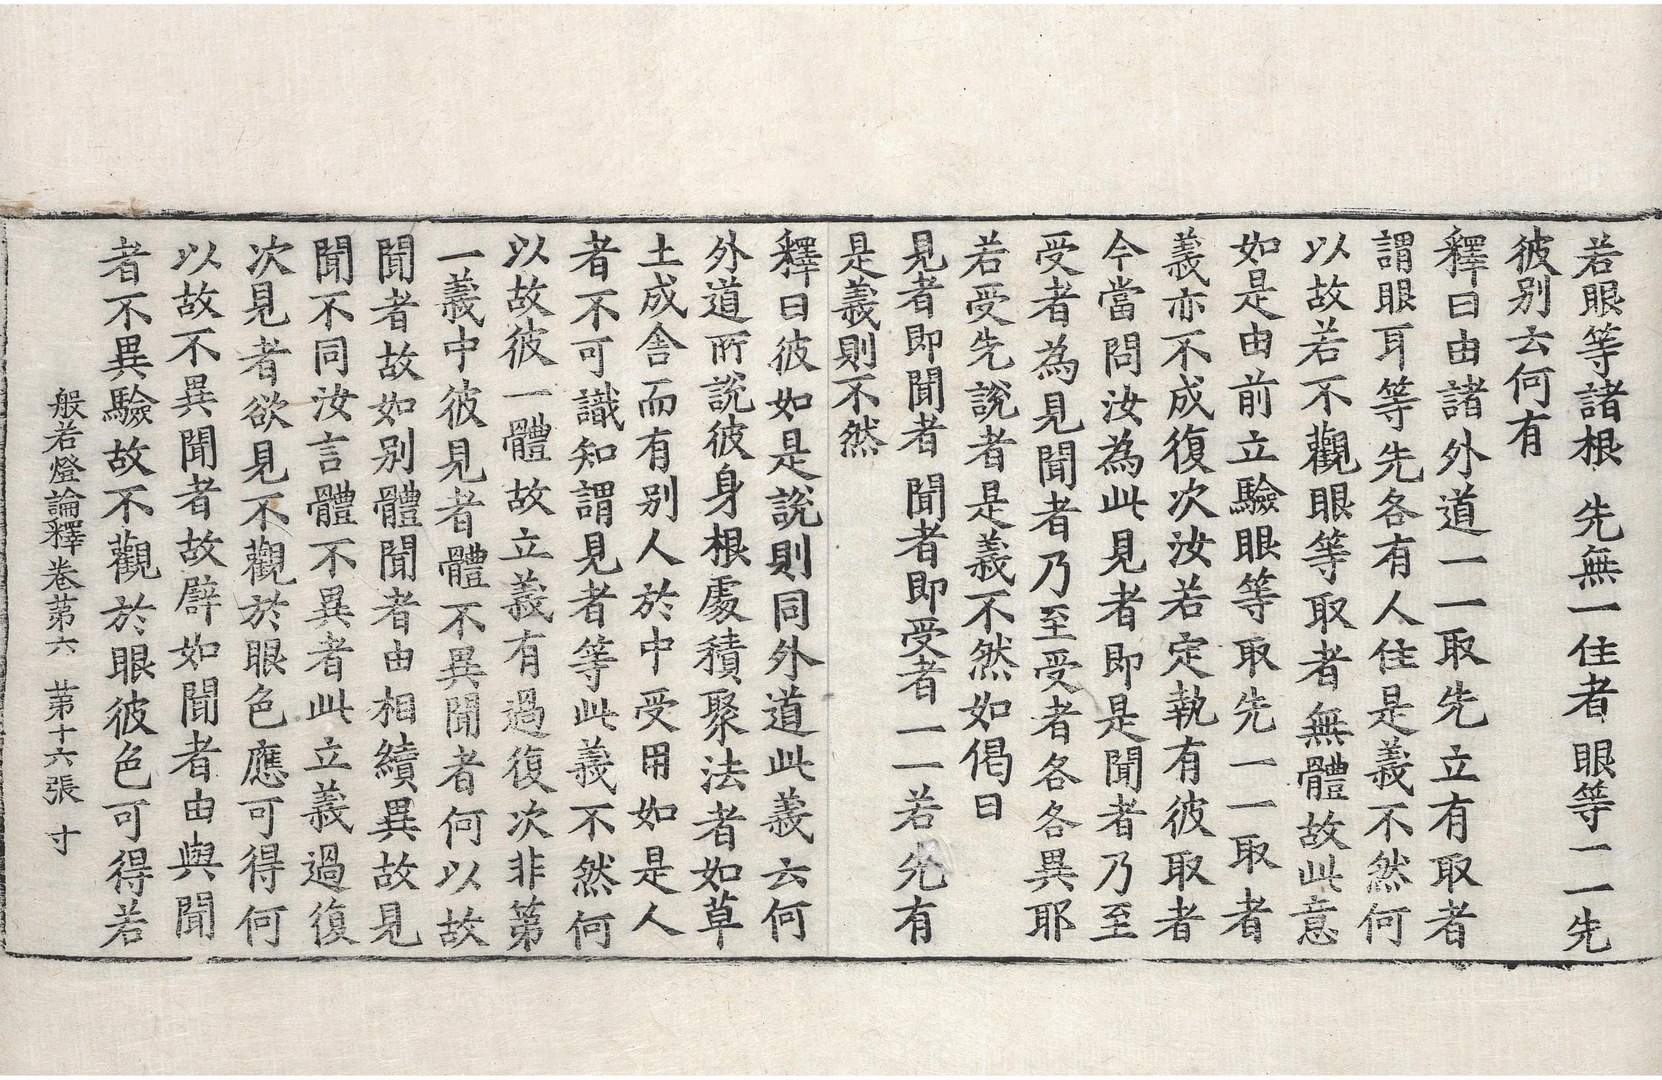 若眼等諸根 先無一住者 眼等一一先
彼別云何有
釋曰由諸外道一一取先立有取者
謂眼耳等先各有人住是義不然何
以故若不觀眼等取者無體故此意
如是由前立驗眼等取先一一取者
義亦不成復次汝若定執有彼取者
今當問汝為此見者即是聞者乃至
受者為見聞者乃至受者各各異耶
若受先說者是義不然如偈曰
見者即聞者 聞者即受者 一一若先有
是義則不然
釋曰彼如是說則同外道此義云何
外道所說彼身根處積聚法者如草
土成舍而有別人於中受用如是人
者不可識知謂見者等此義不然何
以故彼一體故立義有過復次非第
一義中彼見者體不異聞者何以故
聞者故如別體聞者由相續異故見
聞不同汝言體不異者此立義過復
次見者欲見不觀於眼色應可得何
以故不異聞者故譬如聞者由與聞
者不異驗故不觀於眼彼色可得若
般若燈論釋卷第六 第十六張 寸